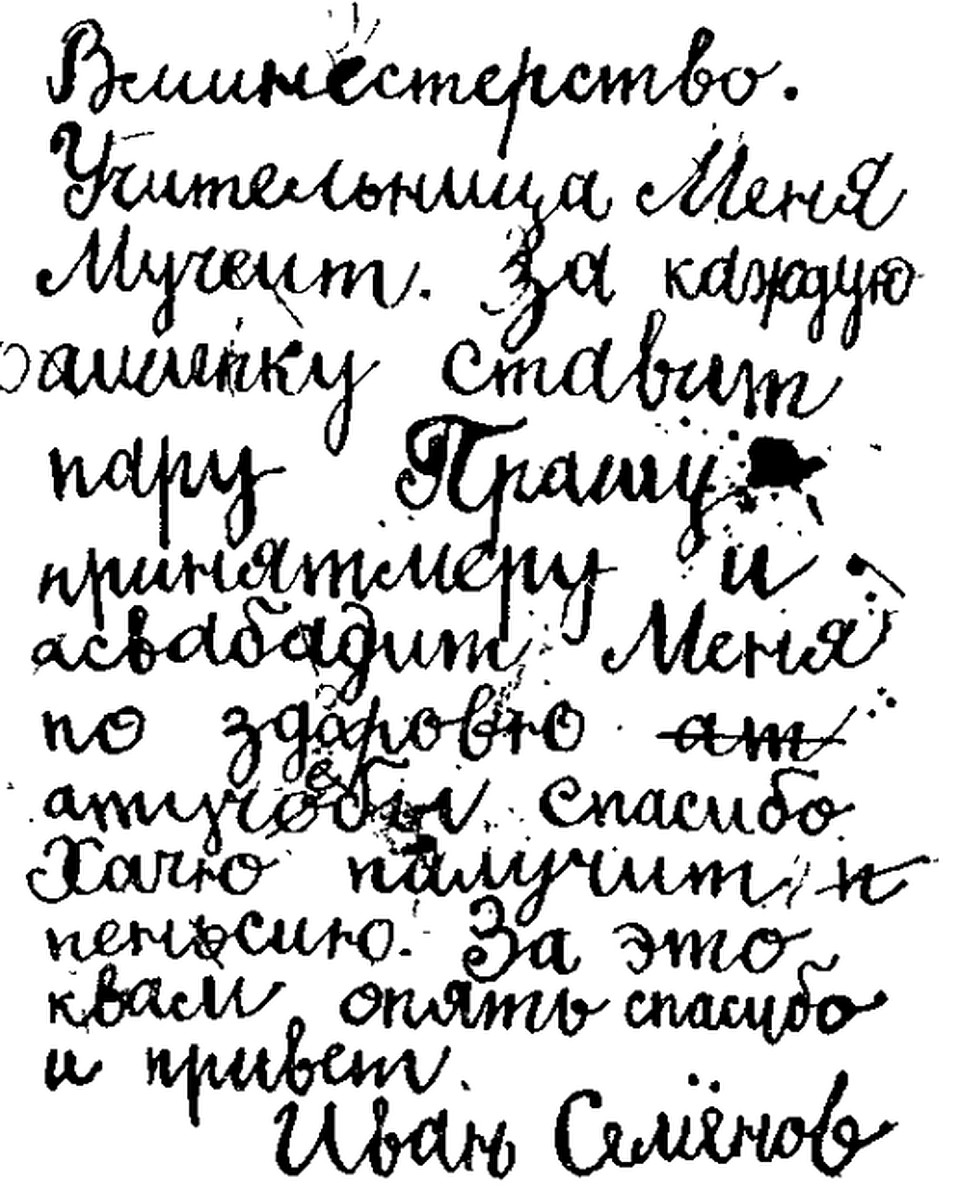 Вминестерство.
Учительница Меня
Мучеит. За каждую
ашипку ставит
пару Прашу
принятмеру и
асвабадит Меня
по здаровью ат
атучобы спасибо
Хачю палучит п
пеньсию. За это
квасм опять спасибо
и привет.
Иванъ Семёновъ